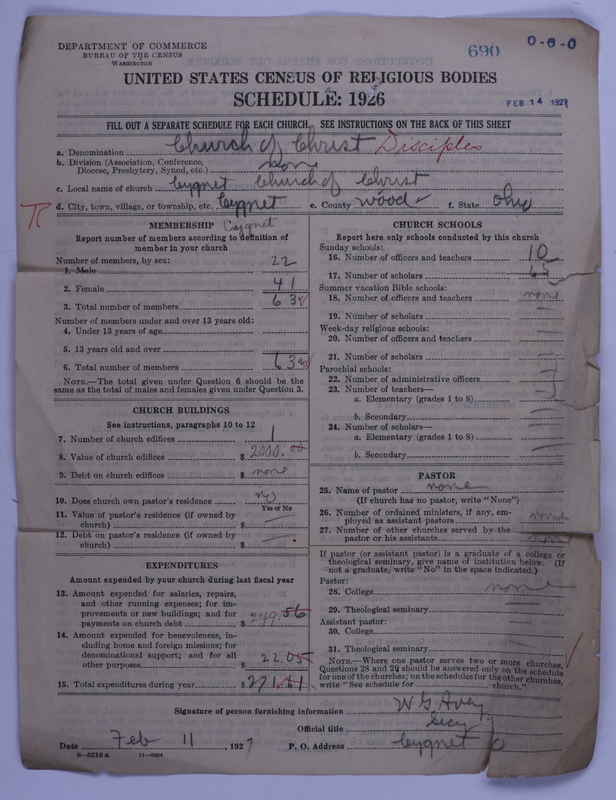 DEPARTMENT OF COMMERCE
BUREAU OF THE CENSUS
WASHINGTON
690
0-6-0
UNITED STATES CENSUS OF RELIGIOUS BODIES
SCHEDULE: 1926
FEB 14 1927
FILL OUT A SEPARATE SCHEDULE FOR EACH CHURCH. SEE INSTRUCTIONS ON THE BACK OF THIS SHEET
a. Denomination Church of Christ Disciples
b. Division (Association, Conference, Diocese, Presbytery, Synod, etc.) None
c. Local name of church Cygnet Church of Christ
d. City, town, village, or township, etc. Cygnet e. County Wood f. State Ohio
MEMBERSHIP Cygnet
Report number of members according to definition of
member in your church
Number of members, by sex:
1. Male 22
2. Female 41
3. Total number of members 63
Number of members under and over 13 years old:
4. Under 13 years of age
5. 13 years old and over
6. Total number of members 63
NOTE.—The total given under Question 6 should be the
same as the total of males and females given under Question 3.
CHURCH BUILDINGS
See instructions, paragraphs 10 to 12
7. Number of church edifices 1
8. Value of church edifices $ 2000.00
9. Debt on church edifices $ none
10. Does church own pastor's residence no
Yes or No
11. Value of pastor's residence (if owned by
church) $ —
12. Debt on pastor's residence (if owned by
church) $ —
EXPENDITURES
Amount expended by your church during last fiscal year
13. Amount expended for salaries, repairs,
and other running expenses; for im-
provements or new buildings; and for
payments on church debt $ 249.56
14. Amount expended for benevolences, in-
cluding home and foreign missions; for
denominational support; and for all
other purposes $ 22.05
15. Total expenditures during year $ 271.61
CHURCH SCHOOLS
Report here only schools conducted by this church
Sunday schools:
16. Number of officers and teachers 10
17. Number of scholars 65
Summer vacation Bible schools:
18. Number of officers and teachers none
19. Number of scholars —
Week-day religious schools:
20. Number of officers and teachers
21. Number of scholars —
Parochial schools:
22. Number of administrative officers —
23. Number of teachers—
a. Elementary (grades 1 to 8) —
b. Secondary —
24. Number of scholars—
a. Elementary (grades 1 to 8) —
b. Secondary —
PASTOR
25. Name of pastor none
(If church has no pastor, write "None")
26. Number of ordained ministers, if any, em-
ployed as assistant pastors none
27. Number of other churches served by the
pastor or his assistants
If pastor (or assistant pastor) is a graduate of a college or
theological seminary, give name of institution below. (If
not a graduate, write "No" in the space indicated.)
Pastor:
28. College none
29. Theological seminary —
Assistant pastor:
30. College —
31. Theological seminary —
NOTE.—Where one pastor serves two or more churches,
Questions 28 and 29 should be answered only on the schedule
for one of the churches; on the schedules for the other churches,
write "See schedule for church."
Signature of person furnishing information W G Avey
Official title Secy
Date Feb 11, 1927 P. O. Address Cygnet O
8—5518a 11—9664